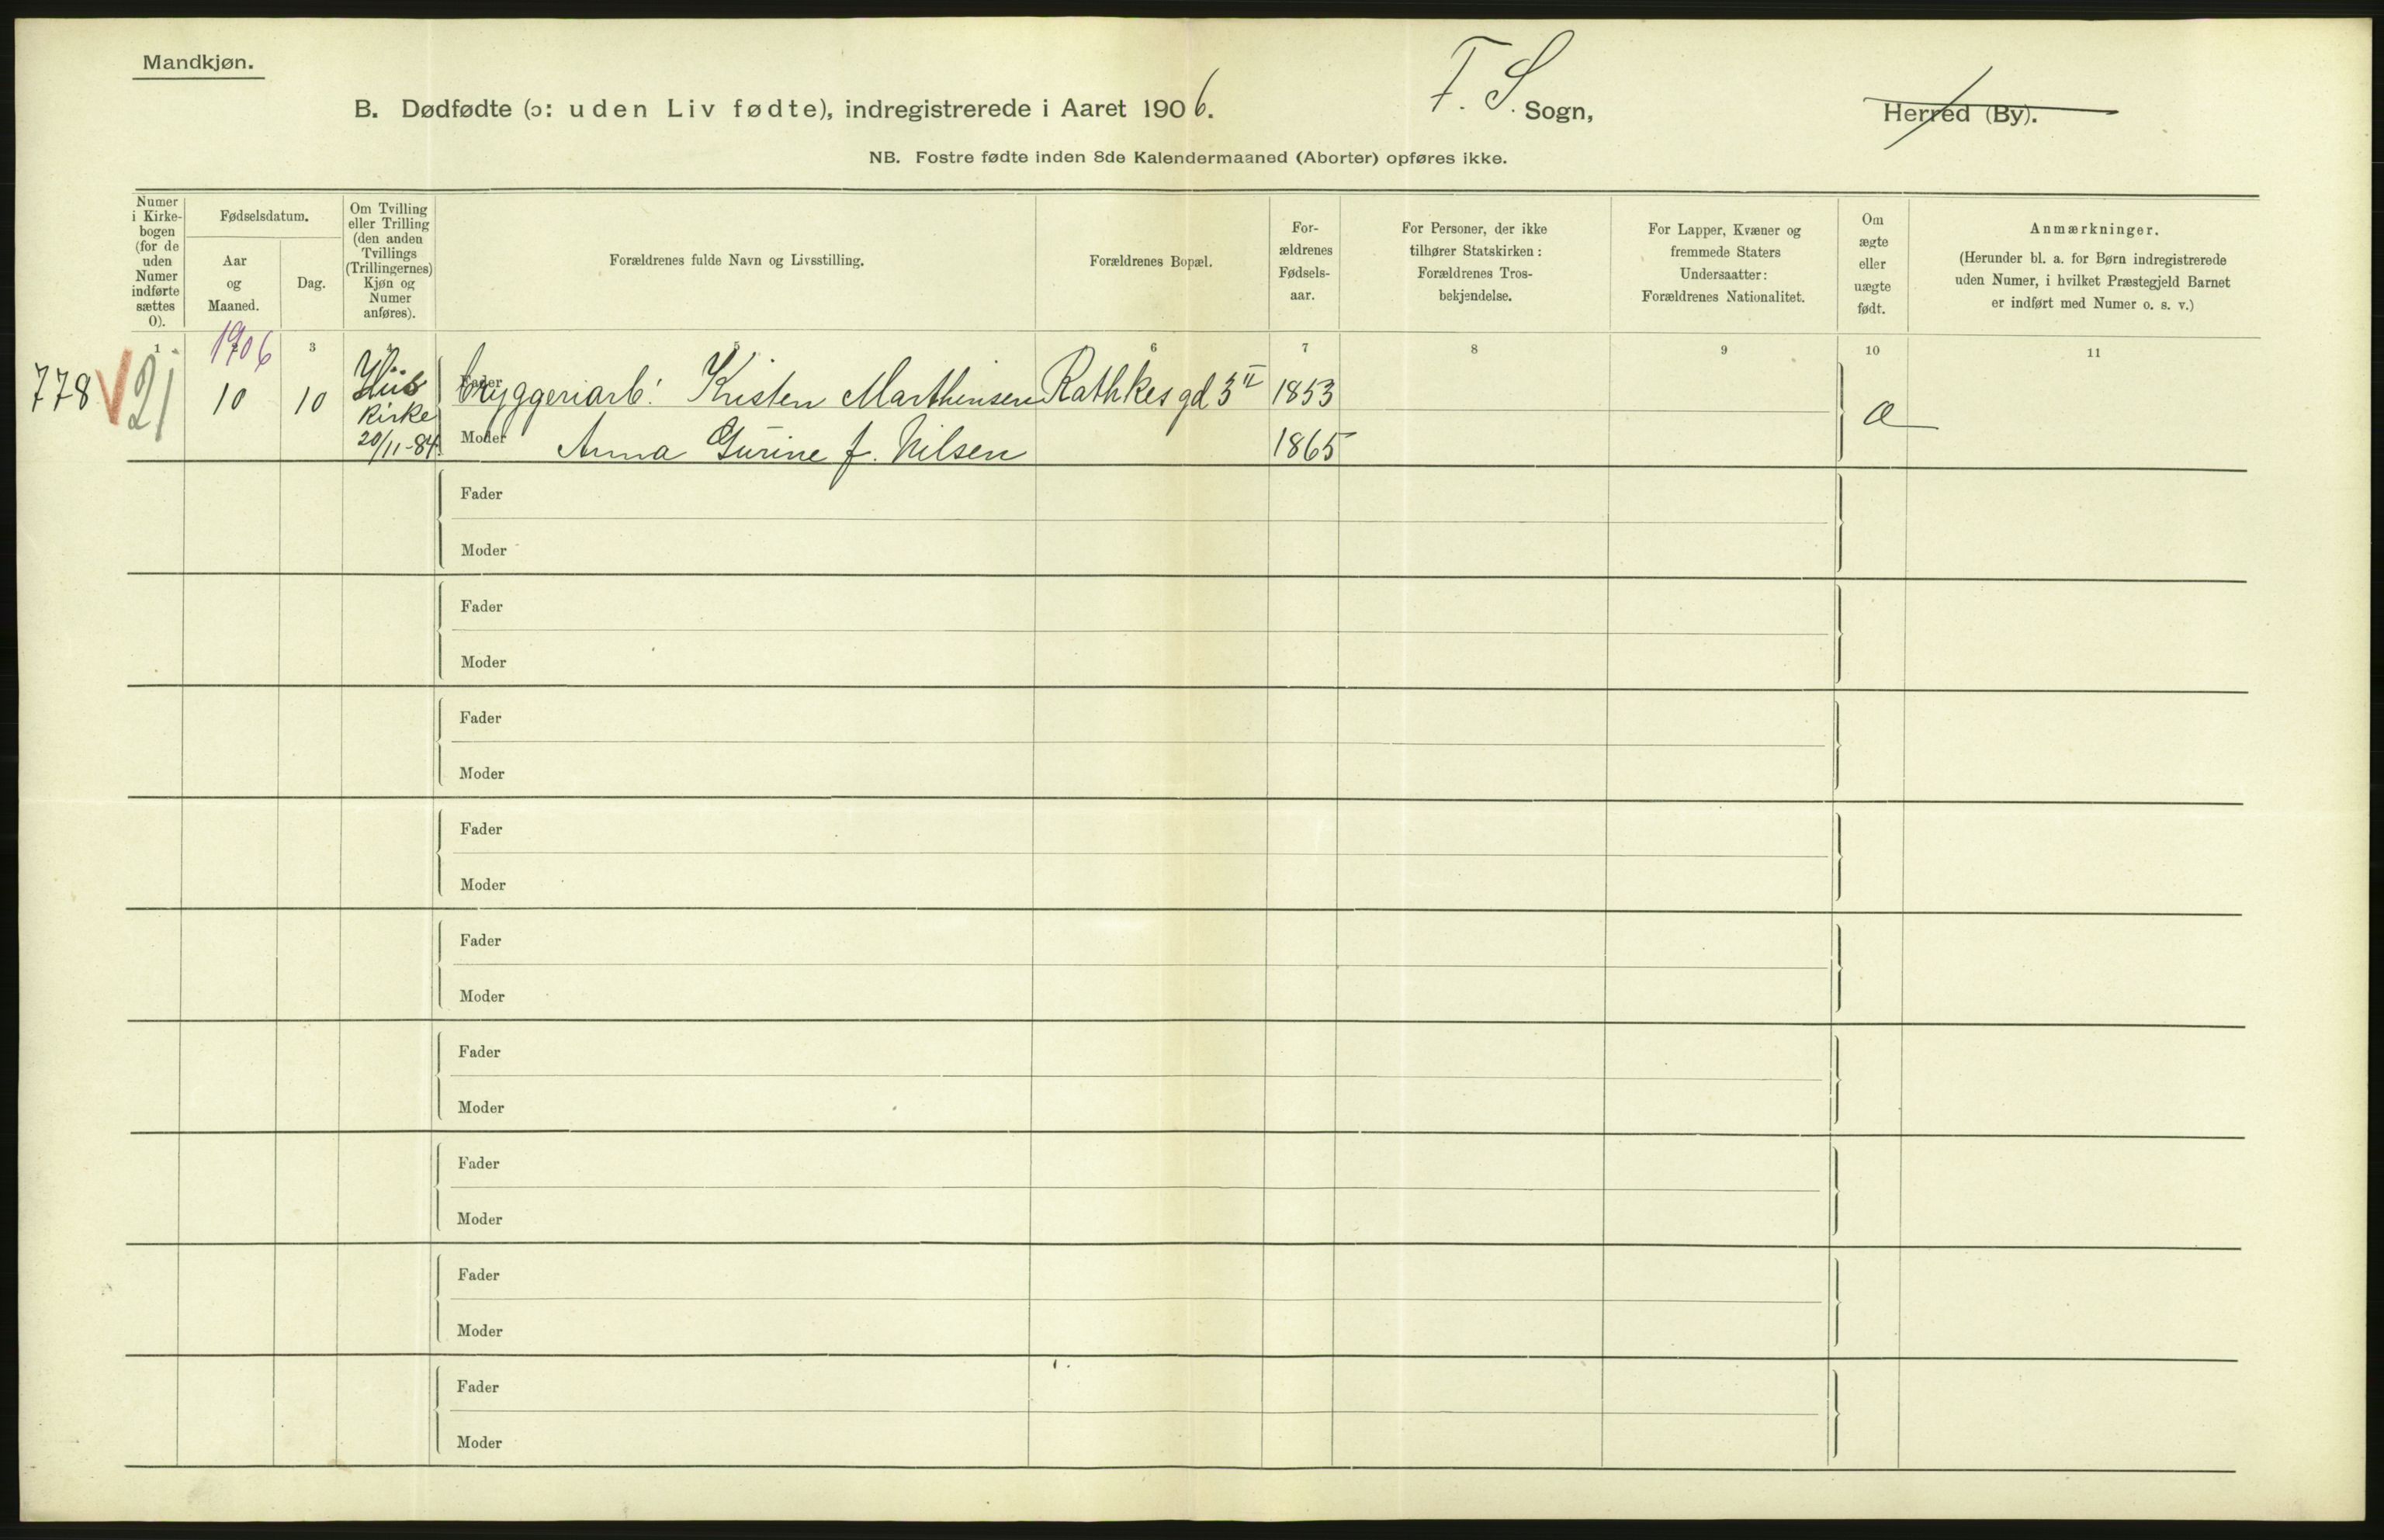 Mandkjøn.
B. Dødfødte (ɔ: uden Liv fødte), indregistrerede i Aaret 1906.
F. S. Sogn,
Herred (By).
NB. Fostre fødte inden 8de Kalendermaaned (Aborter) opføres ikke.
Numer
i Kirke-
bogen
(for de
uden
Numer
indførte
sættes
0).
Fødselsdatum.
Aar
og
Maaned.
Dag.
Om Tvilling
eller Trilling
(den anden
Tvillings
(Trillingernes)
Kjøn og
Numer
anføres).
Forældrenes fulde Navn og Livsstilling.
Forældrenes Bopæl.
For-
ældrenes
Fødsels-
aar.
For Personer, der ikke
tilhører Statskirken:
Forældrenes Tros-
bekjendelse.
For Lapper, Kvæner og
fremmede Staters
Undersaatter:
Forældrenes Nationalitet.
Om
ægte
eller
uægte
født.
Anmærkninger.
(Herunder bl. a. for Børn indregistrerede
uden Numer, i hvilket Præstegjeld Barnet
er indført med Numer o. s. v.)
1 2 3 4 5 6 7 8 9 10 11
1906
778 21 10 10
Kirke
20/11-84
Fader bryggeriarb: Kristen Marthinsen Rathkes gd 3 II 1853
Moder Anna Gurine f. Nilsen 1865
a
Fader
Moder
Fader
Moder
Fader
Moder
Fader
Moder
Fader
Moder
Fader
Moder
Fader
Moder
Fader
Moder
Fader
Moder